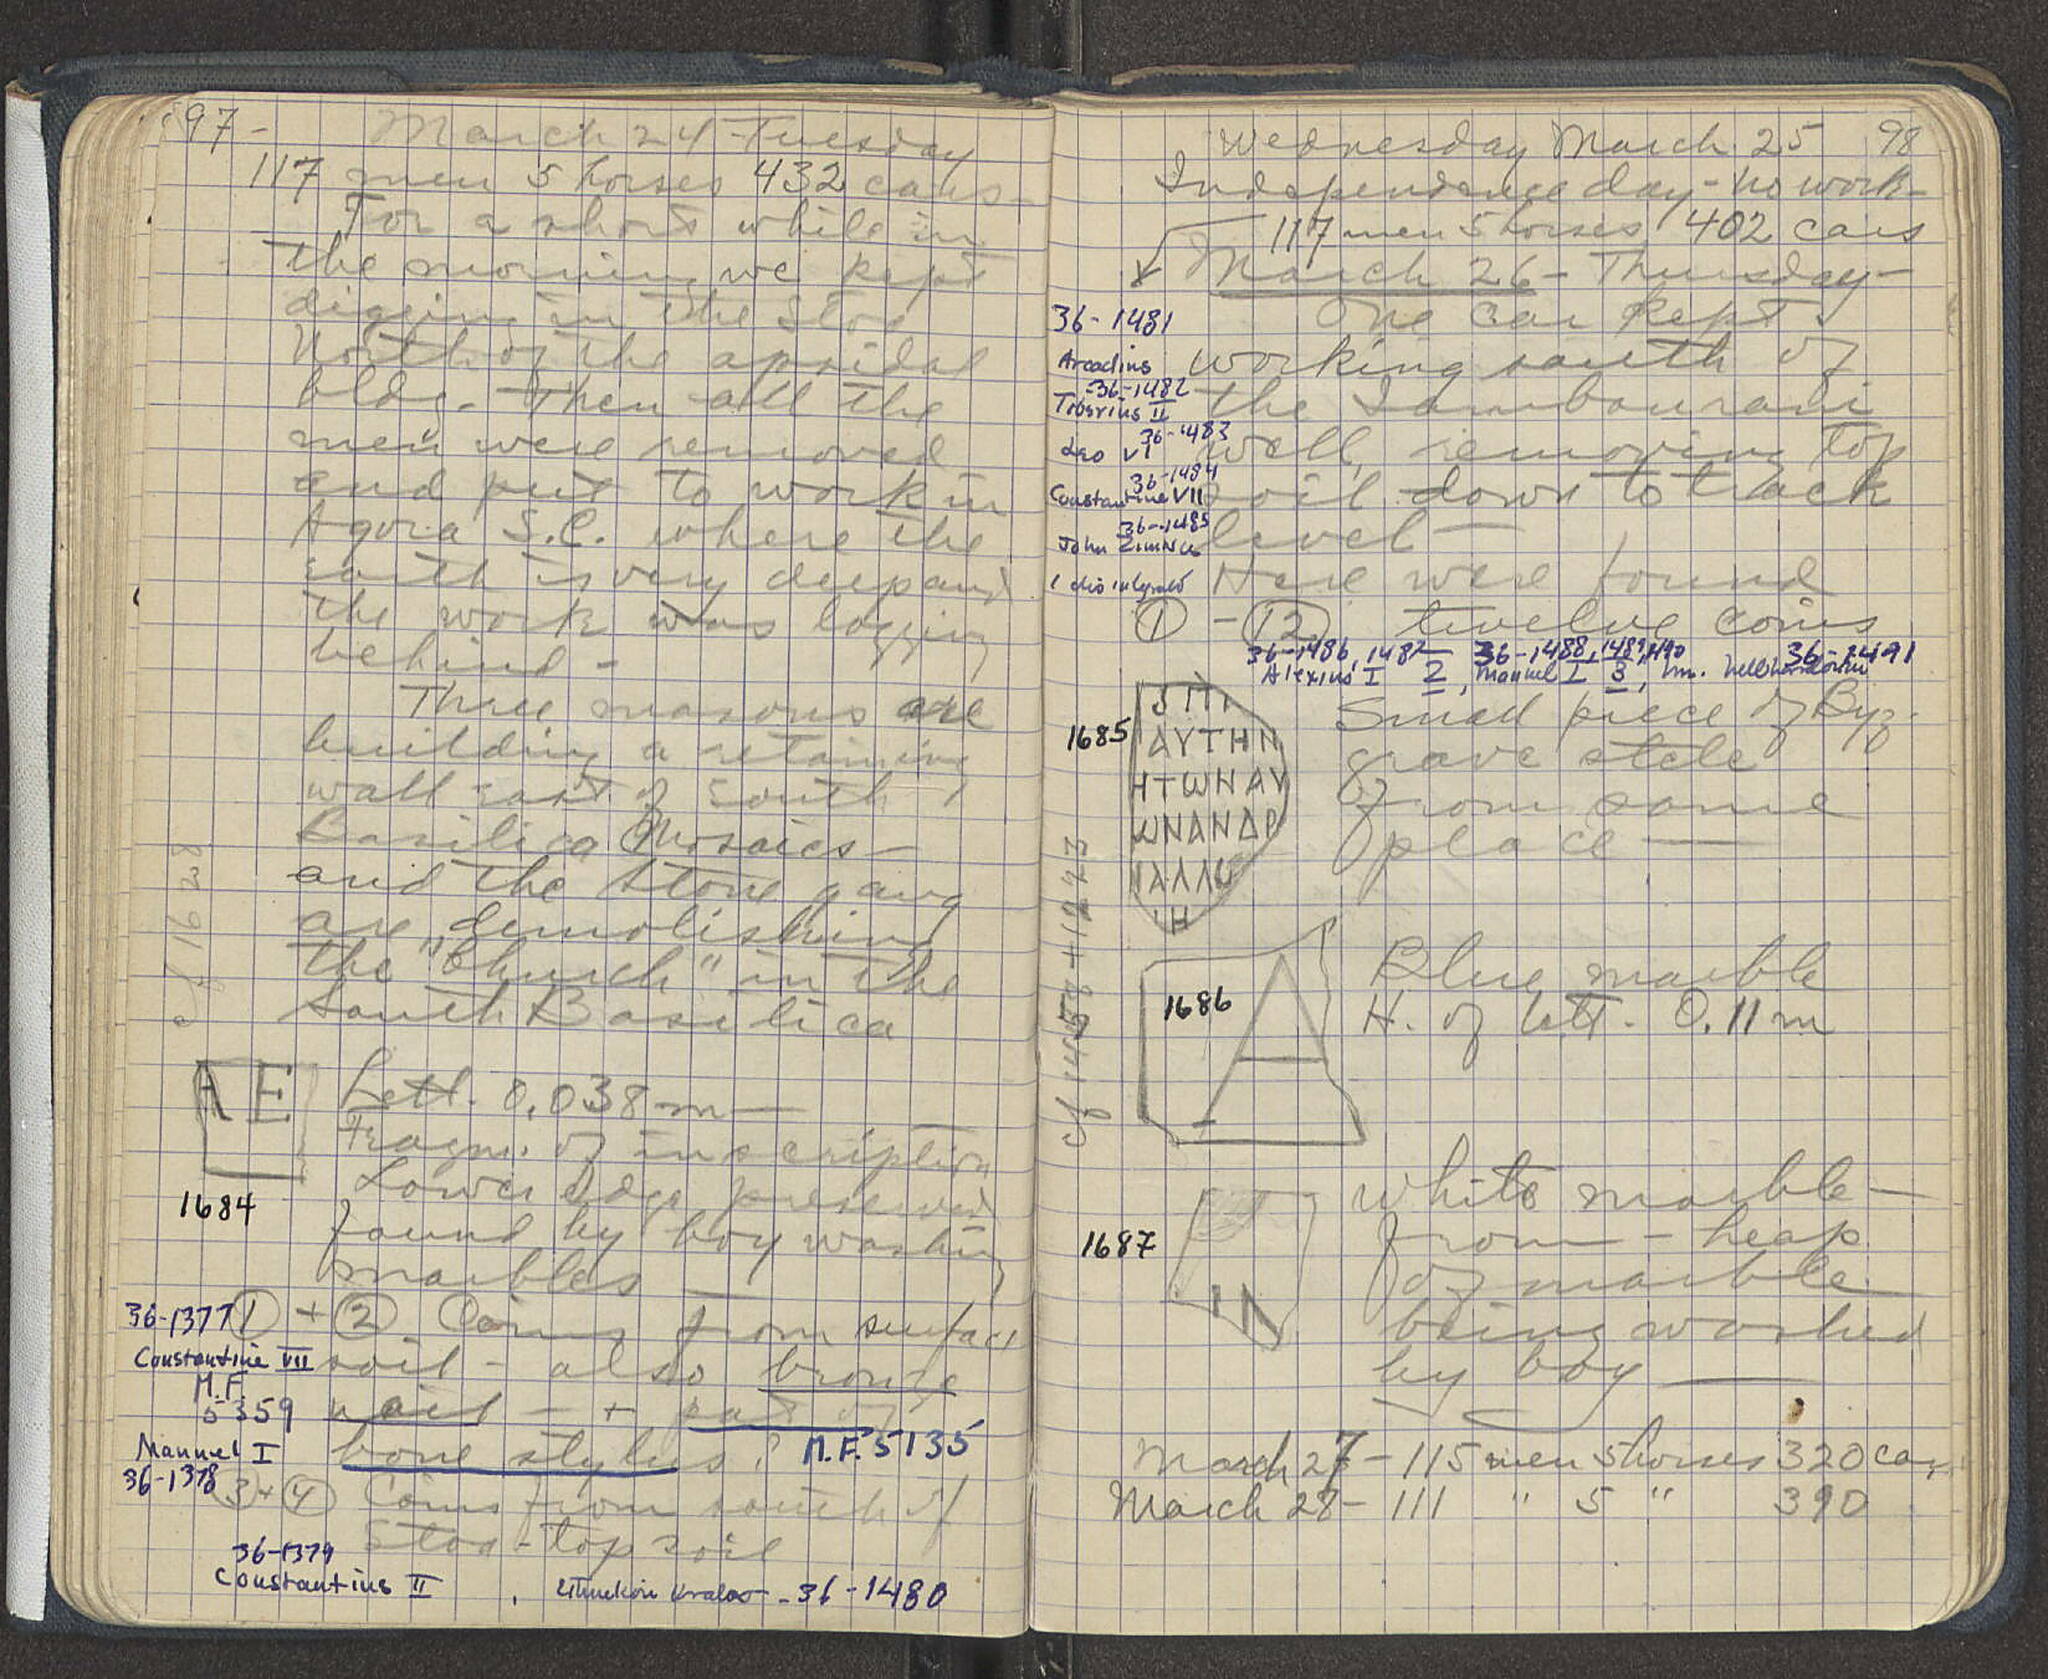 97- March 24 - Tuesday
117 men 5 horses 432 cars -
For a short while in
the morning we kept
digging in the Stoa
North of the apsidal
bldg. Then all the
men were removed
and put to work in
Agora S.C. where the
earth is very deep and
the work was lagging
behind -
Three masons are
building a retaining
wall east of South
Basilica Mosaics -
and the stone gang
are demolishing
the "Church" in the
South Basilica
cf 1628
Α Ε
Lett. 0.038 m -
Fragm. of inscription
Lower edge preserved
1684
found by boy washing
marbles -
36-1377 ① + ② Coins from surface
Constantine VII soil - also bronze
M.F.
5359 nail - + part of
Manuel I bone stylus? M.F. 5135
36-1378 ③ + ④ Coins from south of
Stoa - top soil
36-1379
Constantius II , - 36-1480
Wednesday March 25 98
Independence day - no work -
117 men 5 horses 402 cars
March 26 - Thursday -
36-1481 One car kept
Arcadius working south of
36-1482
Tiberius II the
36-1483
Leo VI well, removing top
36-1484
Constantine VII soil down to track
36-1485
John Zimisces level -
1 disintegrated Here were found
① - ⑫ twelve coins
36-1486, 1487 36-1488, 1489, 1490 36-1491
Alexius I 2, Manuel I 3,
1685
ΑΥΤΗΝ
ΗΤωΝΑΥ
ωΝΑΝΔΡ
ΙΑΛΛω
ΙΗ
Small piece of Byz.
grave stele
from same
place -
cf 1457 + 1223
1686
Α
Blue marble
H. of lett. 0.11 m
1687
ΙΝ
White marble -
from - heap
of marble
being washed
by boy -
March 27 - 115 men 5 horses 320 cars
March 28 - 111 " 5 " 390